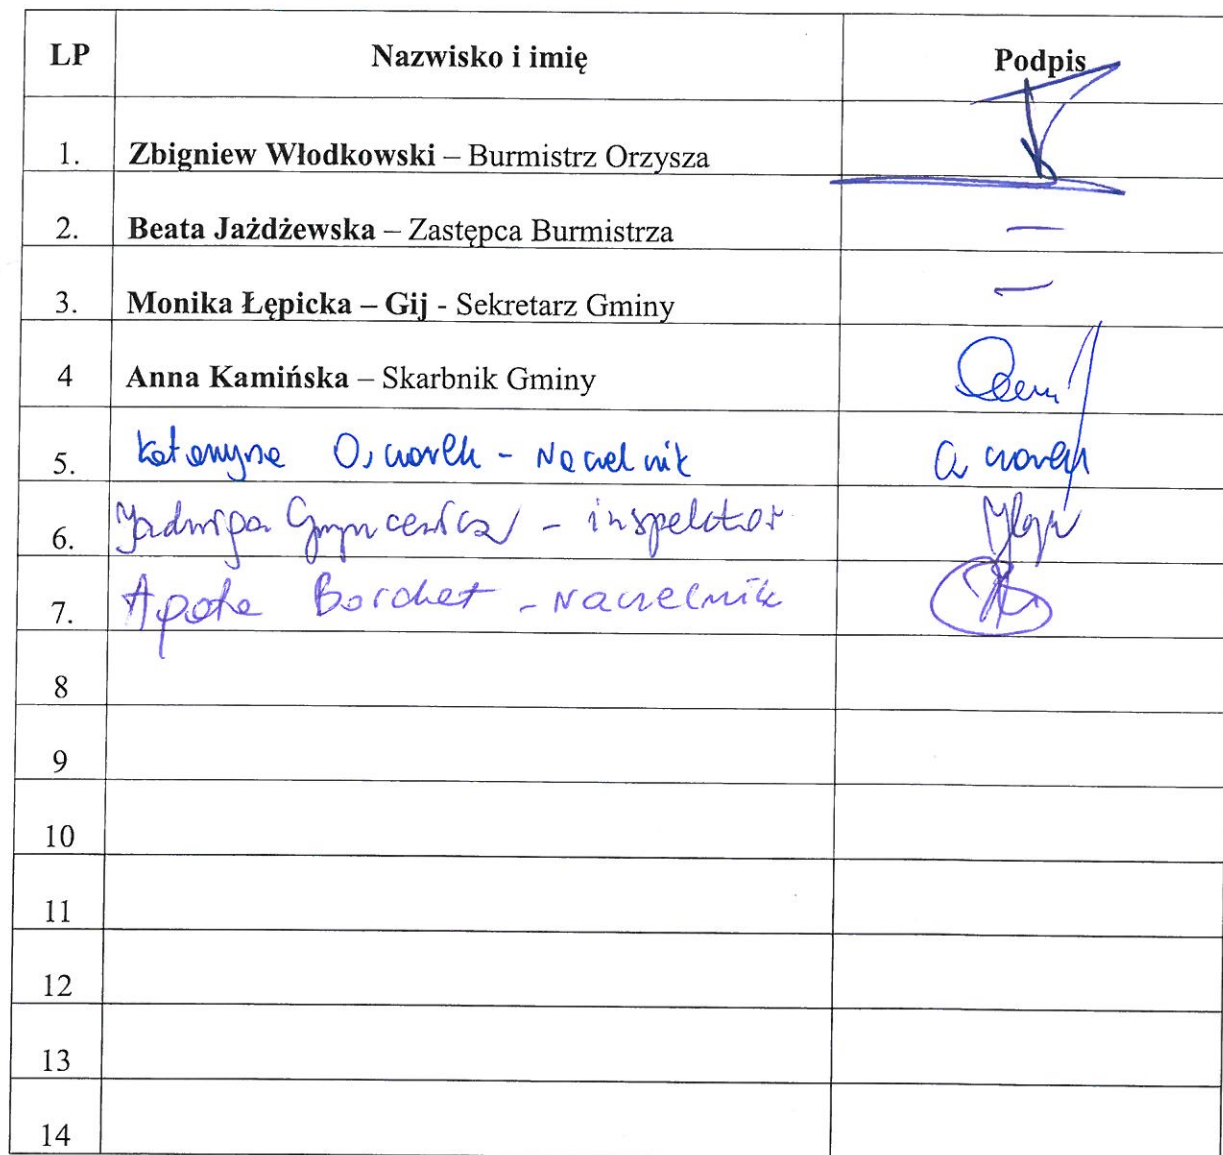 LP Nazwisko i imię Podpis
1. Zbigniew Włodkowski – Burmistrz Orzysza
2. Beata Jażdżewska – Zastępca Burmistrza —
3. Monika Łępicka – Gij - Sekretarz Gminy —
4 Anna Kamińska – Skarbnik Gminy
5. Katarzyna - Naczelnik
6. Jadwiga - inspektor
7. Agata Borchet - Naczelnik
8
9
10
11
12
13
14